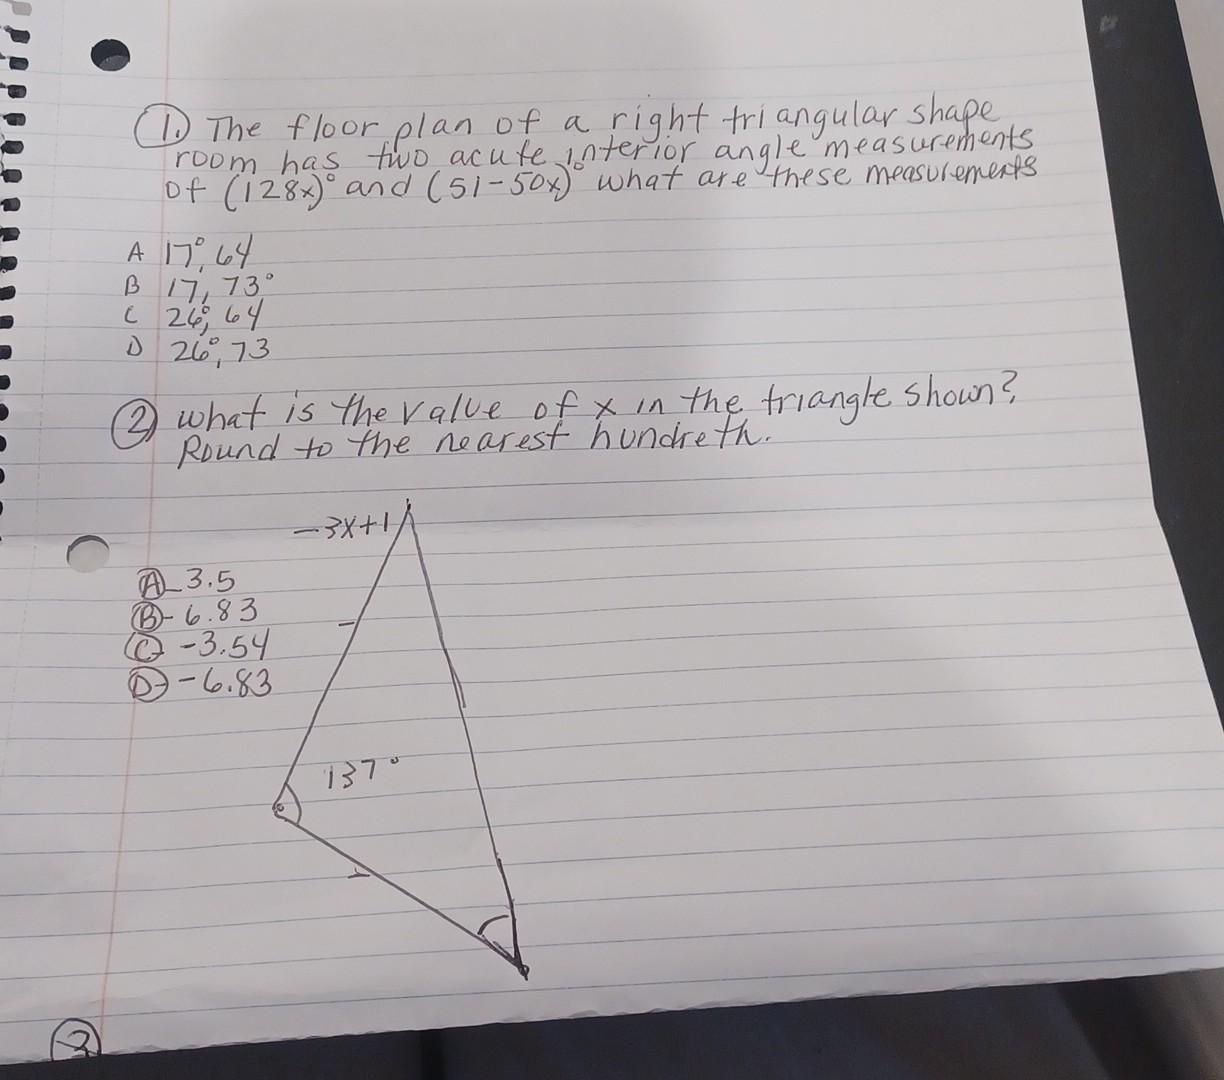 1. The floor plan of a right triangular shape
room has two acute interior angle measurements
of (128x)° and (51-50x)° what are these measurements
A 17°, 64
B 17, 73°
C 26°, 64
D 26°, 73
2 what is the value of x in the triangle shown?
Round to the nearest hundreth.
-3x+1
A - 3.5
B - 6.83
C - -3.54
D - -6.83
137°
3